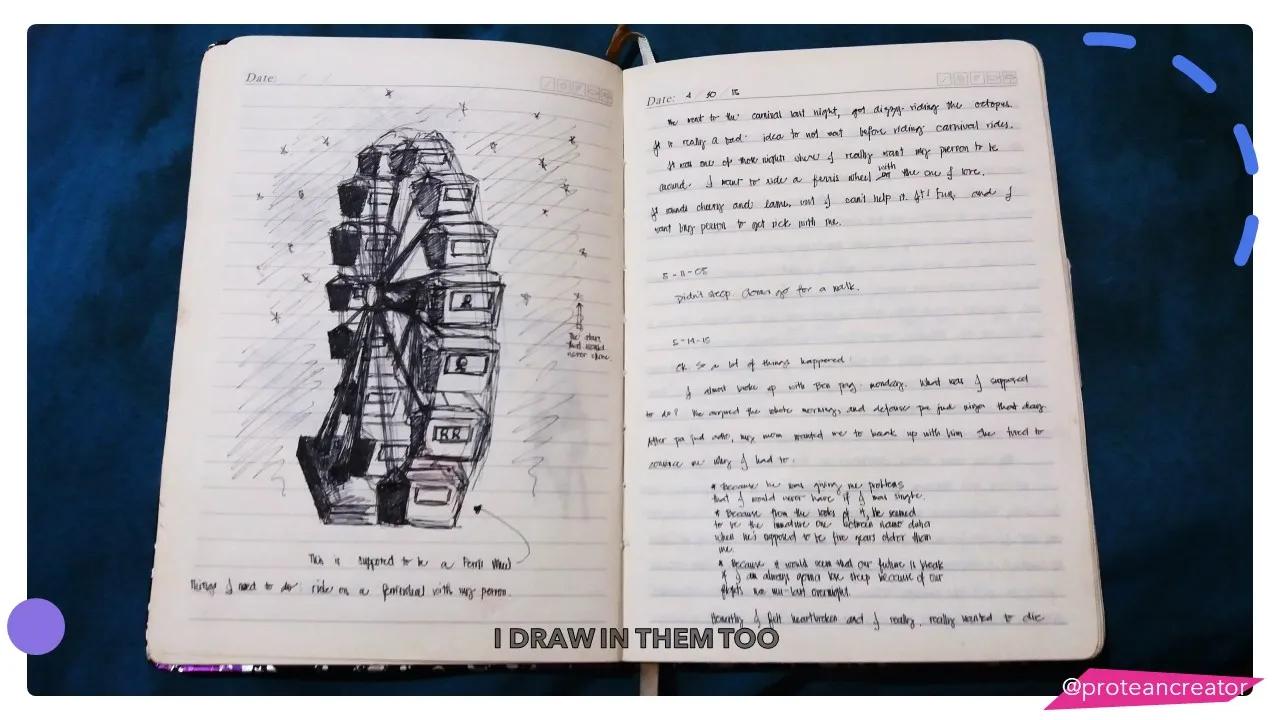 Date:
The stars
that would
never shine.
This is supposed to be a Ferris Wheel
Things I need to do: ride on a ferriswheel with my person.
Date: 4 / 30 / 15
We went to the carnival last night, got dizzy riding the octopus.
It is really a bad idea to not eat before riding carnival rides.
It was one of those nights where I really want my person to be
around. I want to ride a ferris wheel with the one I love.
It sounds cheesy and lame, but I can't help it. It's fun, and I
want my person to get sick with me.
5-11-05
Didn't sleep. Gonna go for a walk.
5-14-15
Ok. So a lot of things happened.
I almost broke up with Bon monday. What was I supposed
to do? We argued the whole morning, and defense pa jud that day.
After pa jud ato, my mom wanted me to break up with him. She tried to
convince me why I had to.
* Because he was giving me problems
that I would never have if I was single.
* Because from the looks of it, he seemed
to be the immature one between namo duha
when he's supposed to be five years older than
me.
* Because it would seem that our future is bleak
* I am always gonna lose sleep because of our
fights na mu-last overnight.
Honestly I felt heartbroken and I really, really wanted to die
I DRAW IN THEM TOO
@proteancreator